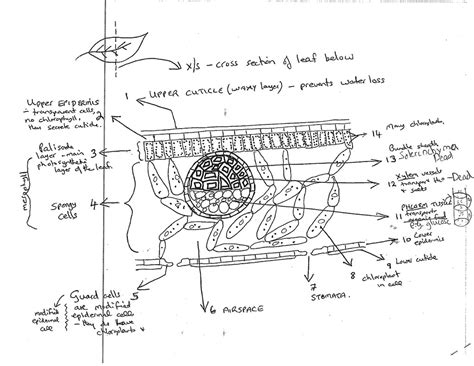 x/s - cross section of leaf below
1 UPPER CUTICLE (waxy layer) - prevents water loss
Upper EPIDERMIS
- transparent cells, 2
no chlorophyll,
thus secrete cuticle.
14 Many chloroplasts
Palisade
layer - main 3
photosynthetic
layer of the leaf.
mesophyll
Bundle sheath
13 Sclerenchyma
Dead
Xylem vessels - Dead
12 transport H₂O
+ salts
Spongy 4
cells
PHLOEM TISSUE
11 transports
organic food
eg glucose
10 Lower
epidermis
9 Lower cuticle
8 chloroplast
in cell
7
STOMATA.
6 AIRSPACE
Guard cells 5
are modified
epidermal cells
- they do have
chloroplasts
modified
epidermal
cell